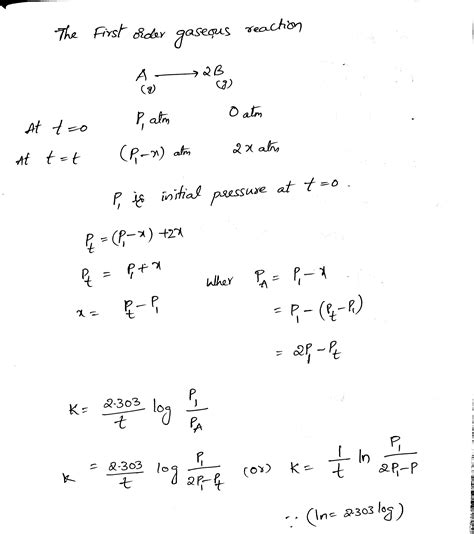 The First order gaseous reaction
A ⟶ 2B
(g) (g)
At t=0 P₁ atm 0 atm
At t=t (P₁-x) atm 2x atm
P₁ is initial pressure at t=0.
Pt = (P₁-x) +2x
Pt = P₁+x Wher P_A = P₁-x
x = Pt-P₁ = P₁-(Pt-P₁)
= 2P₁-Pt
K = 2.303/t log P₁/P_A
K = 2.303/t log P₁/2P₁-Pt (or) K = 1/t ln P₁/2P₁-P
∵ (ln = 2.303 log)